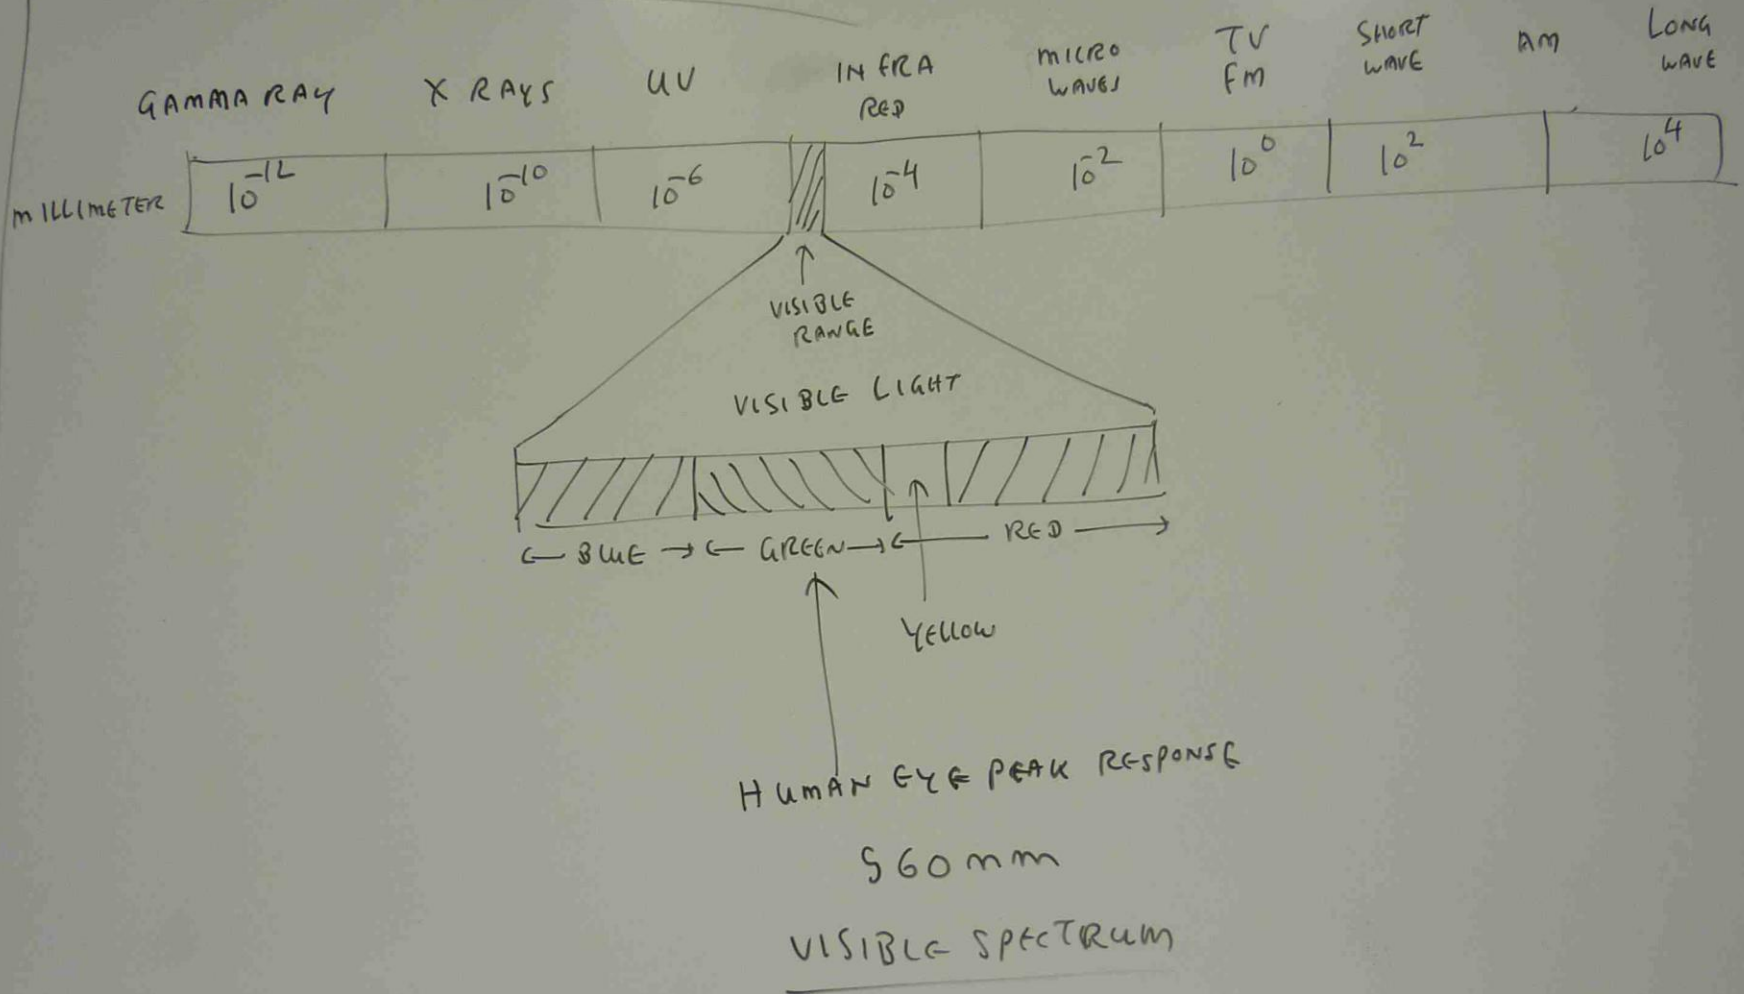 GAMMA RAY
X RAYS
UV
INFRA
RED
MICRO
WAVES
TV
FM
SHORT
WAVE
AM
LONG
WAVE
MILLIMETER
10^-12
10^-10
10^-6
10^-4
10^-2
10^0
10^2
10^4
VISIBLE
RANGE
VISIBLE LIGHT
BLUE
GREEN
RED
YELLOW
HUMAN EYE PEAK RESPONSE
560nm
VISIBLE SPECTRUM